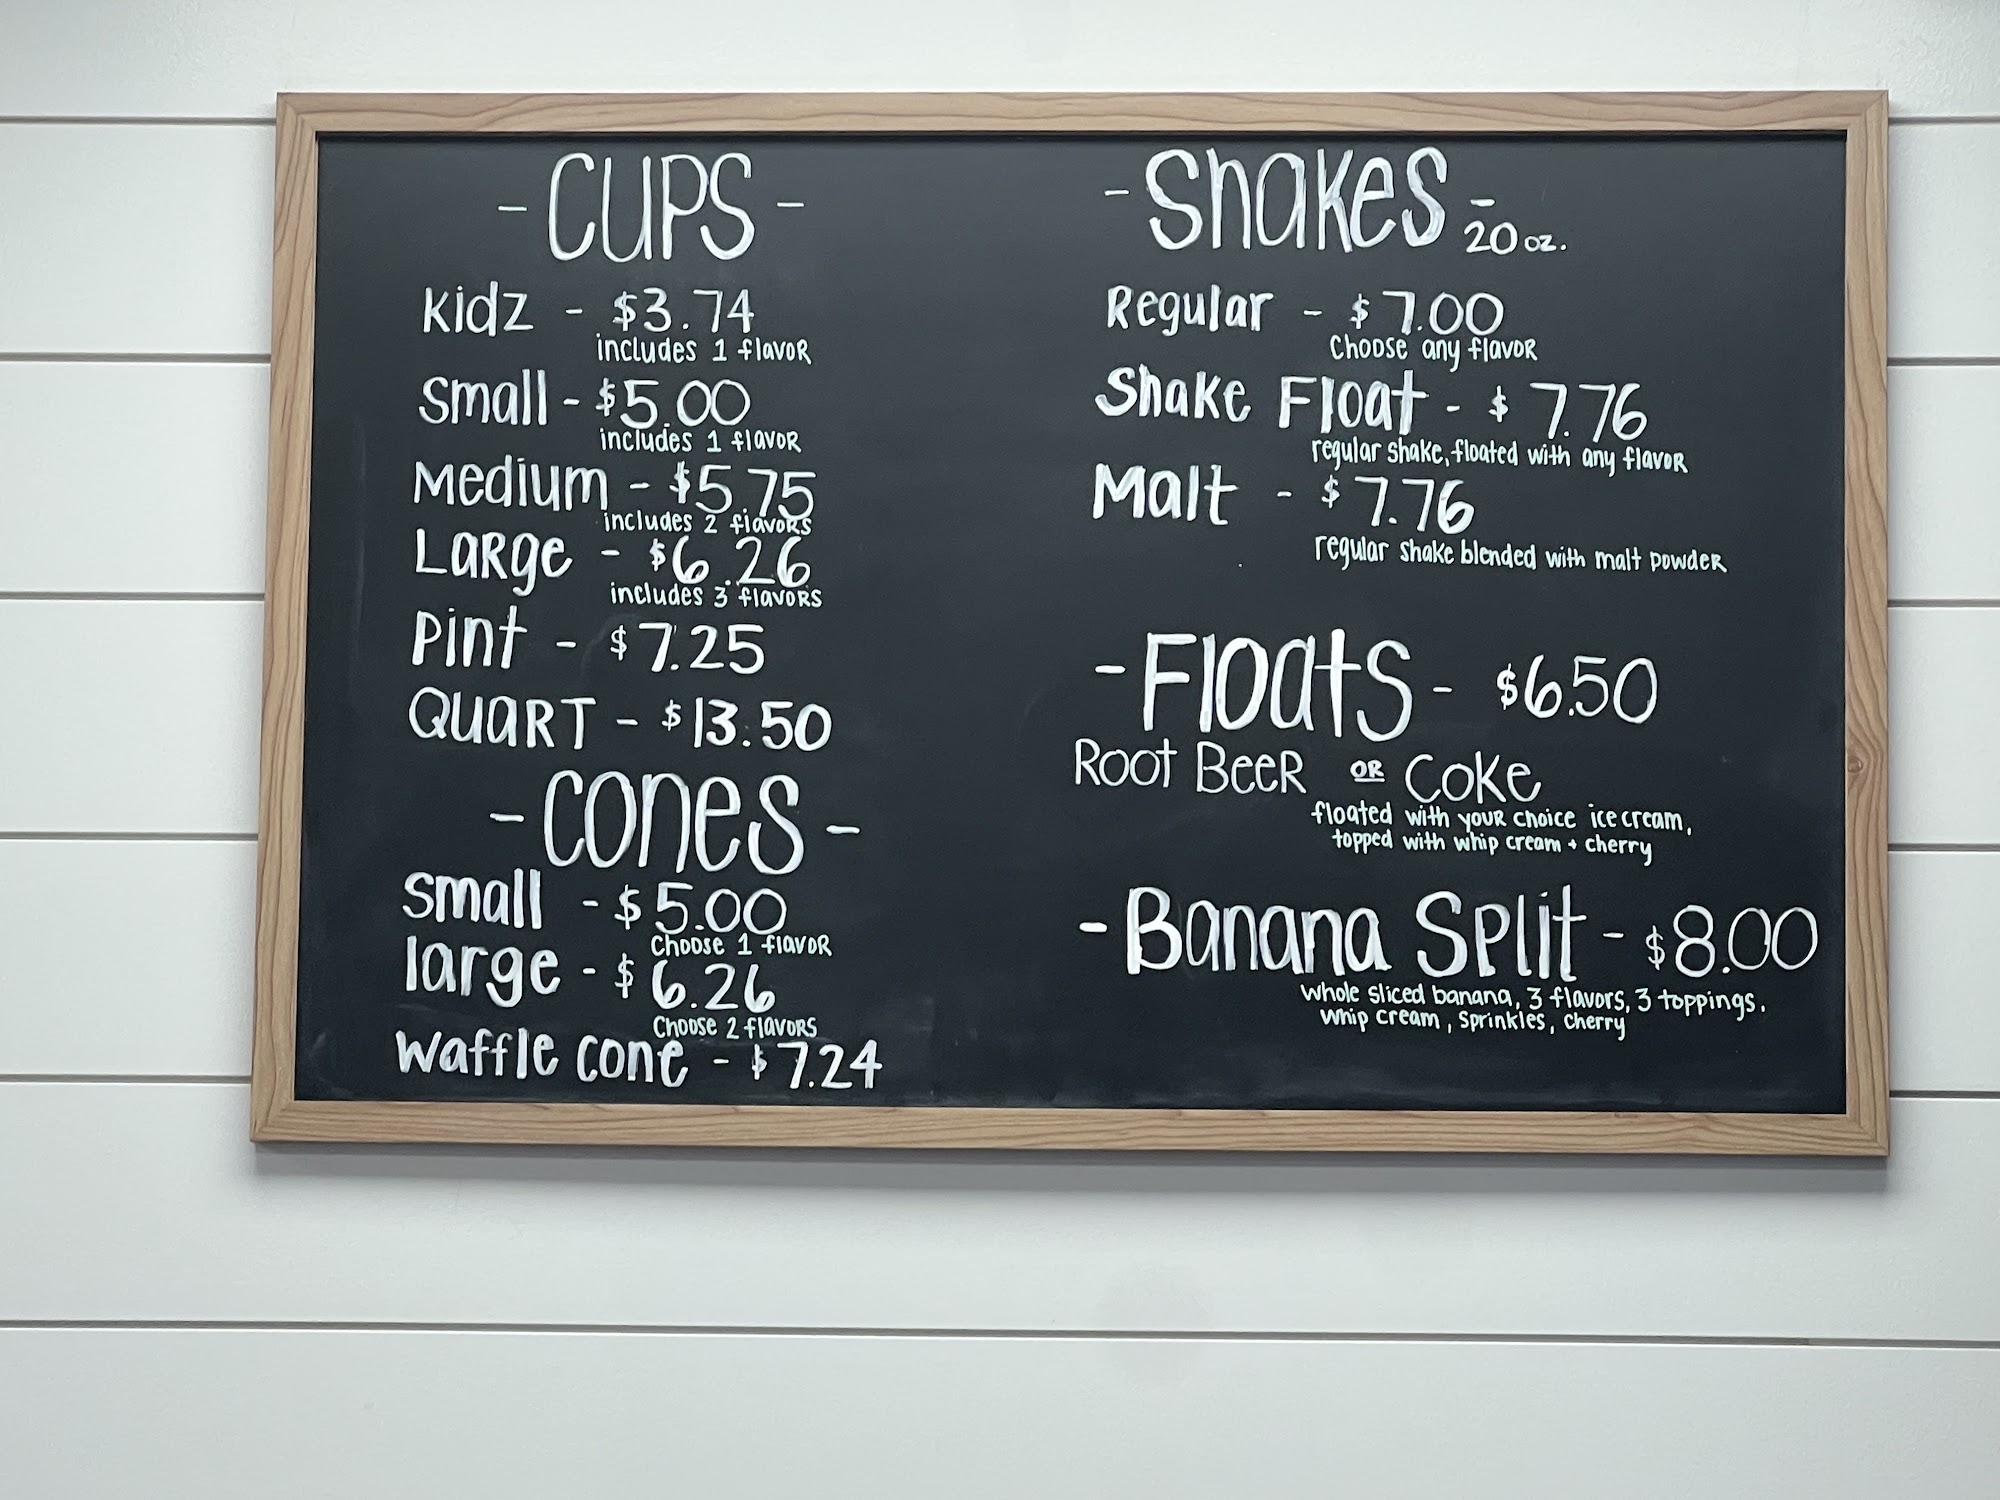 - CUPS -
Kidz - $3.74
includes 1 flavor
Small - $5.00
includes 1 flavor
Medium - $5.75
includes 2 flavors
Large - $6.26
includes 3 flavors
Pint - $7.25
QUART - $13.50
- Cones -
Small - $5.00
Choose 1 flavor
large - $6.26
Choose 2 flavors
Waffle cone - $7.24
- Shakes -
20 oz.
Regular - $7.00
Choose any flavor
Shake Float - $7.76
regular shake, floated with any flavor
Malt - $7.76
regular shake blended with malt powder
- Floats - $6.50
Root Beer or Coke
floated with your choice ice cream,
topped with whip cream + cherry
- Banana Split - $8.00
whole sliced banana, 3 flavors, 3 toppings.
whip cream, sprinkles, cherry